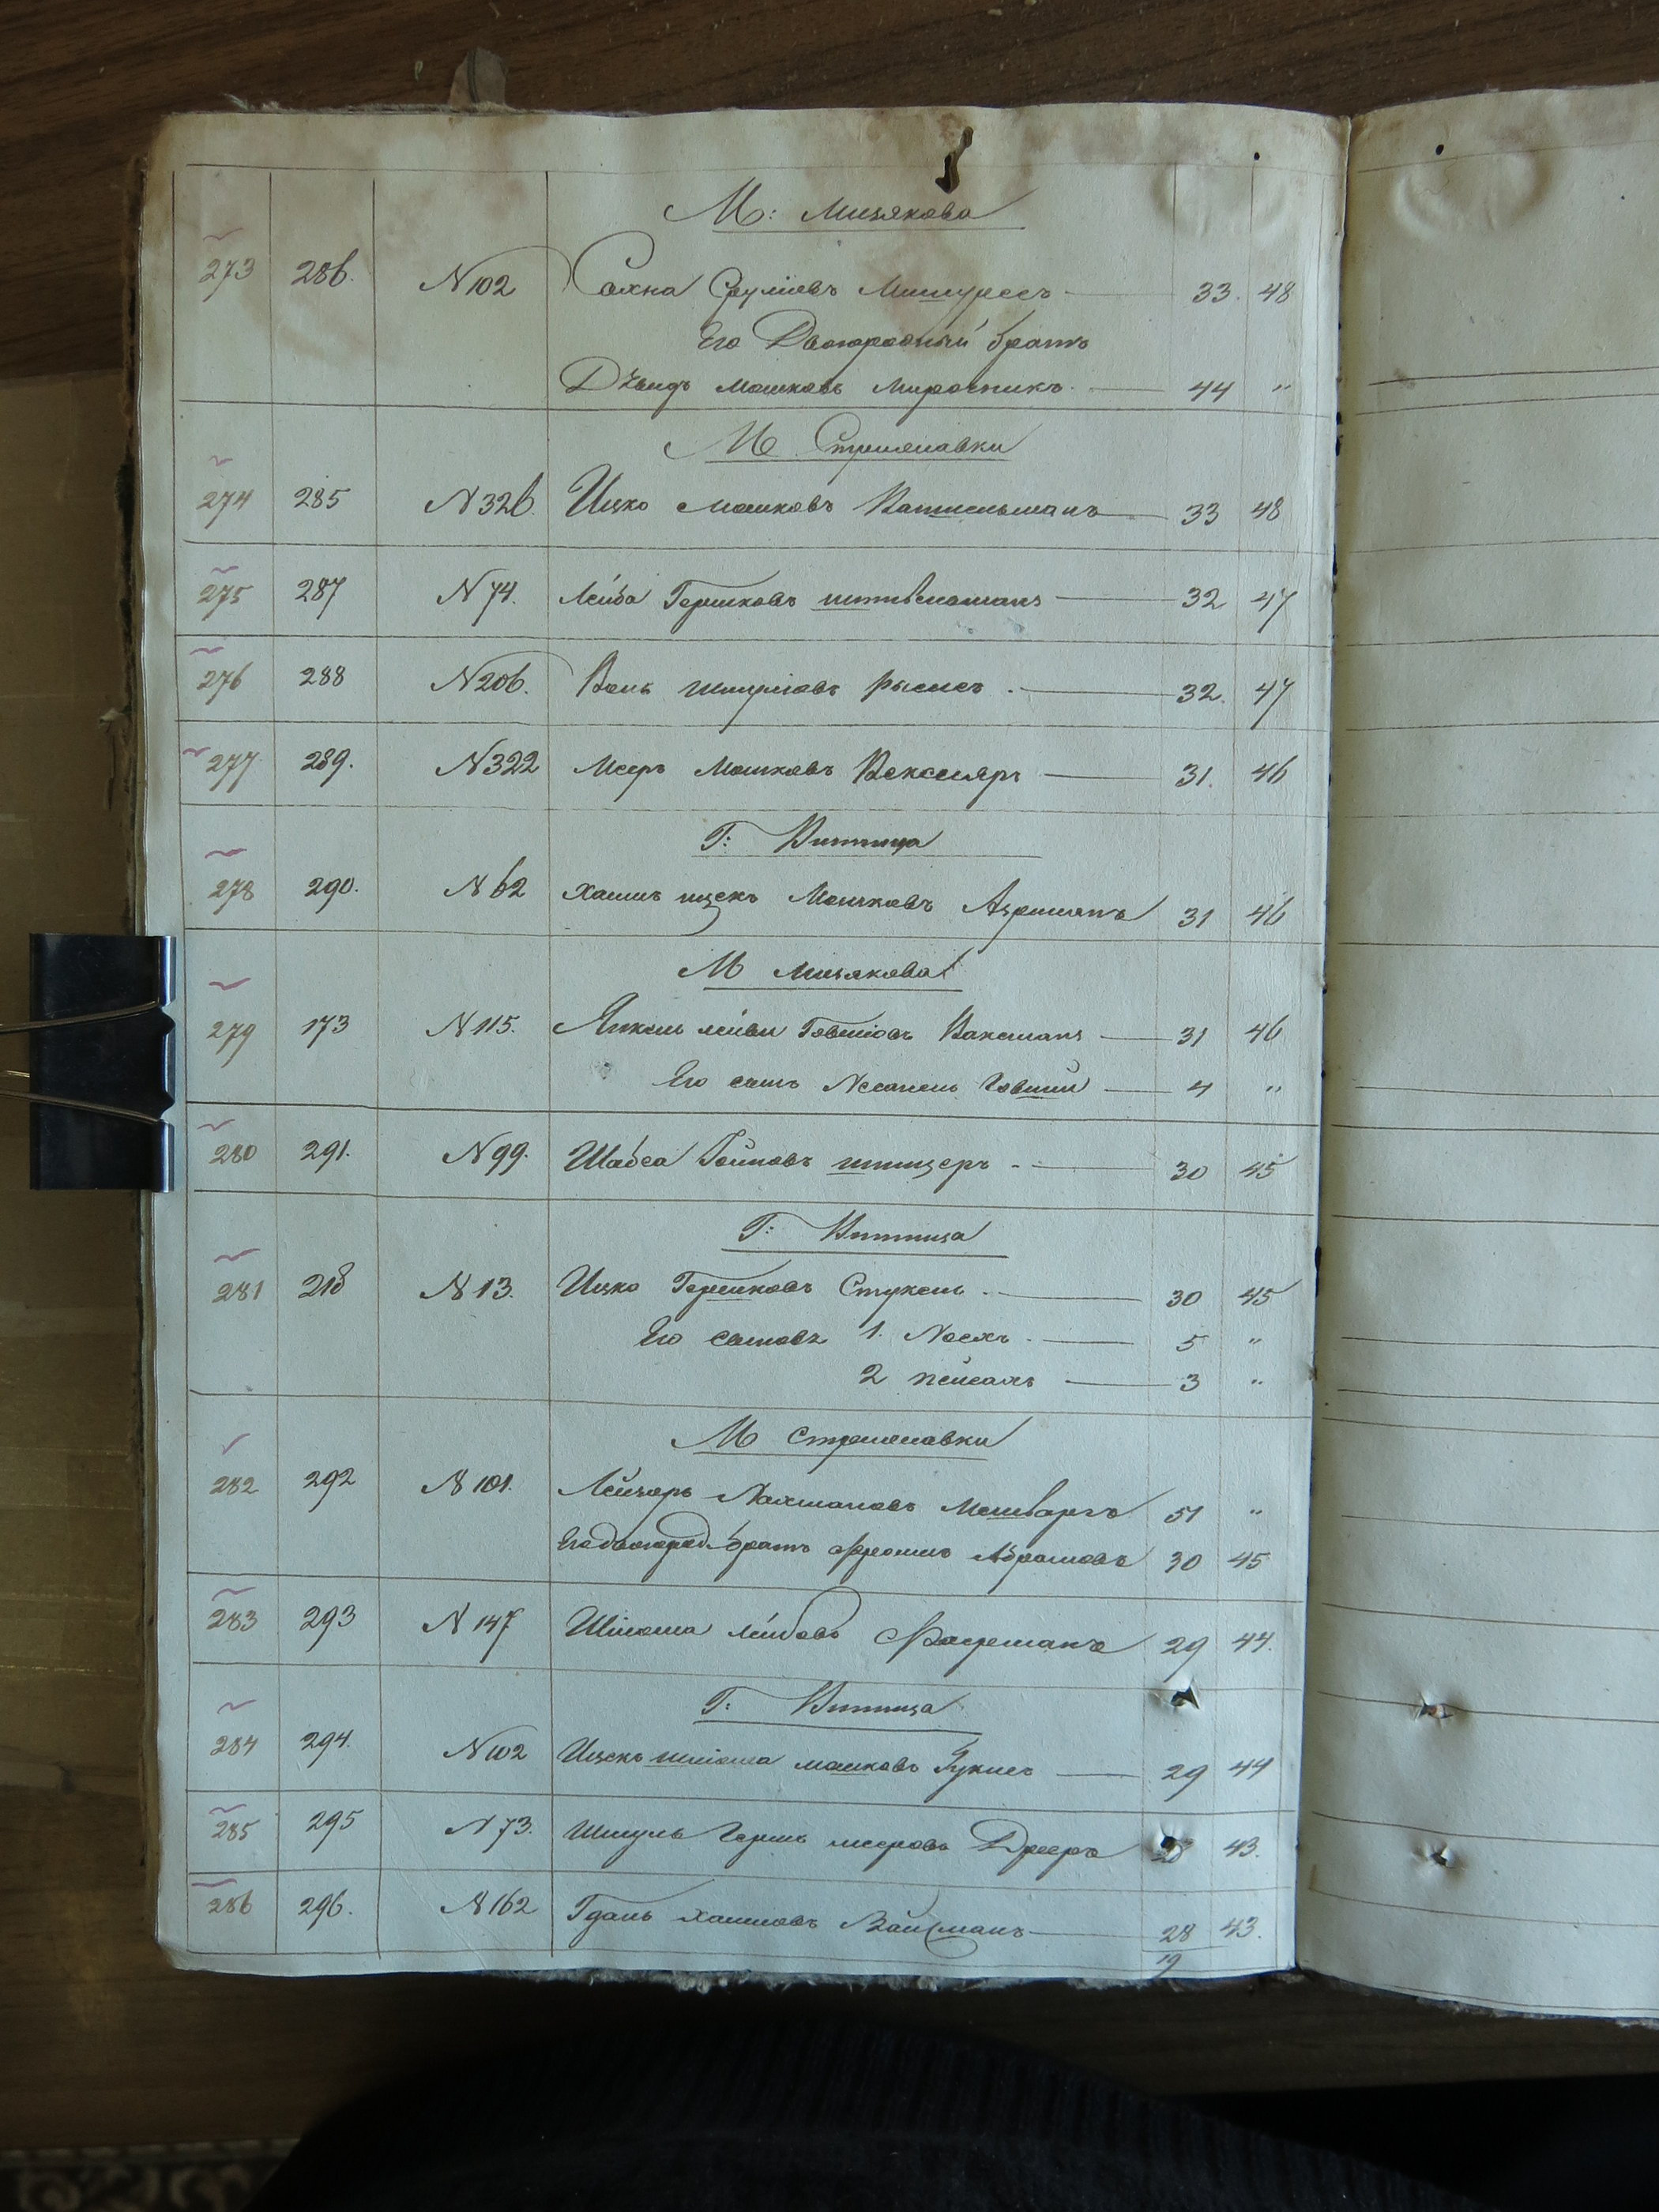 М: Мизякова
273 286. N102 Сахна Срулiевъ Мишуресъ 33. 48
Его Двоюродный братъ
Дѣвидъ Мошковъ Мирочникъ 44 "
М Стрижавки
274 285 N326. Ицко Мошковъ 33 48
275 287 N74. Лейба Гершковъ 32 47
276 288 N206. Шмулiовъ 32. 47
277 289. N322 Мееръ Мошковъ Вексляръ 31. 46
Г: Винница
278 290. N62 Хаимъ ицекъ Мошковъ 31 46
М Мизякова
279 173 N115. Янкель лейви Говшiовъ Ваксманъ 31 46
Его сынъ Говший 4 "
280 291. N99. Шабса шпицеръ 30 45
Г: Винница
281 218 N13. Ицко Гершковъ Стукель 30 45
Его сыновъ 1. Носхъ 5 "
2 пейсахъ 3 "
М Стрижавки
282 292 N101. Лейзоръ Нахмановъ 51 "
Его двоюрод. братъ Фроимъ Абрамовъ 30 45
283 293 N147 Шлiома лейбовъ 29 44.
Г: Винница
284 294. N102 Ицекъ шлiома мошковъ 29 44
285 295 N73. Шмуль Гершъ мееровъ Дрееръ 28 43.
286 296. N162 Хаимовъ Вайсманъ 28 43.
19